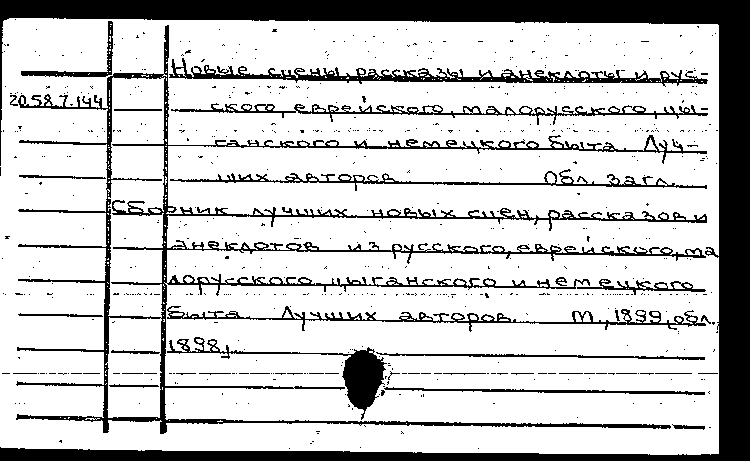 Новые сцены, рассказы и анекдоты и рус-
20.58.7.144
ского, еврейского, малорусского, цы-
ганского и немецкого быта. Луч-
ших авторов. Обл. загл.
Сборник лучших новых сцен, рассказов и
анекдотов из русского, еврейского, ма
лорусского, цыганского и немецкого
быта. Лучших авторов. М., 1899, обл.
1898,